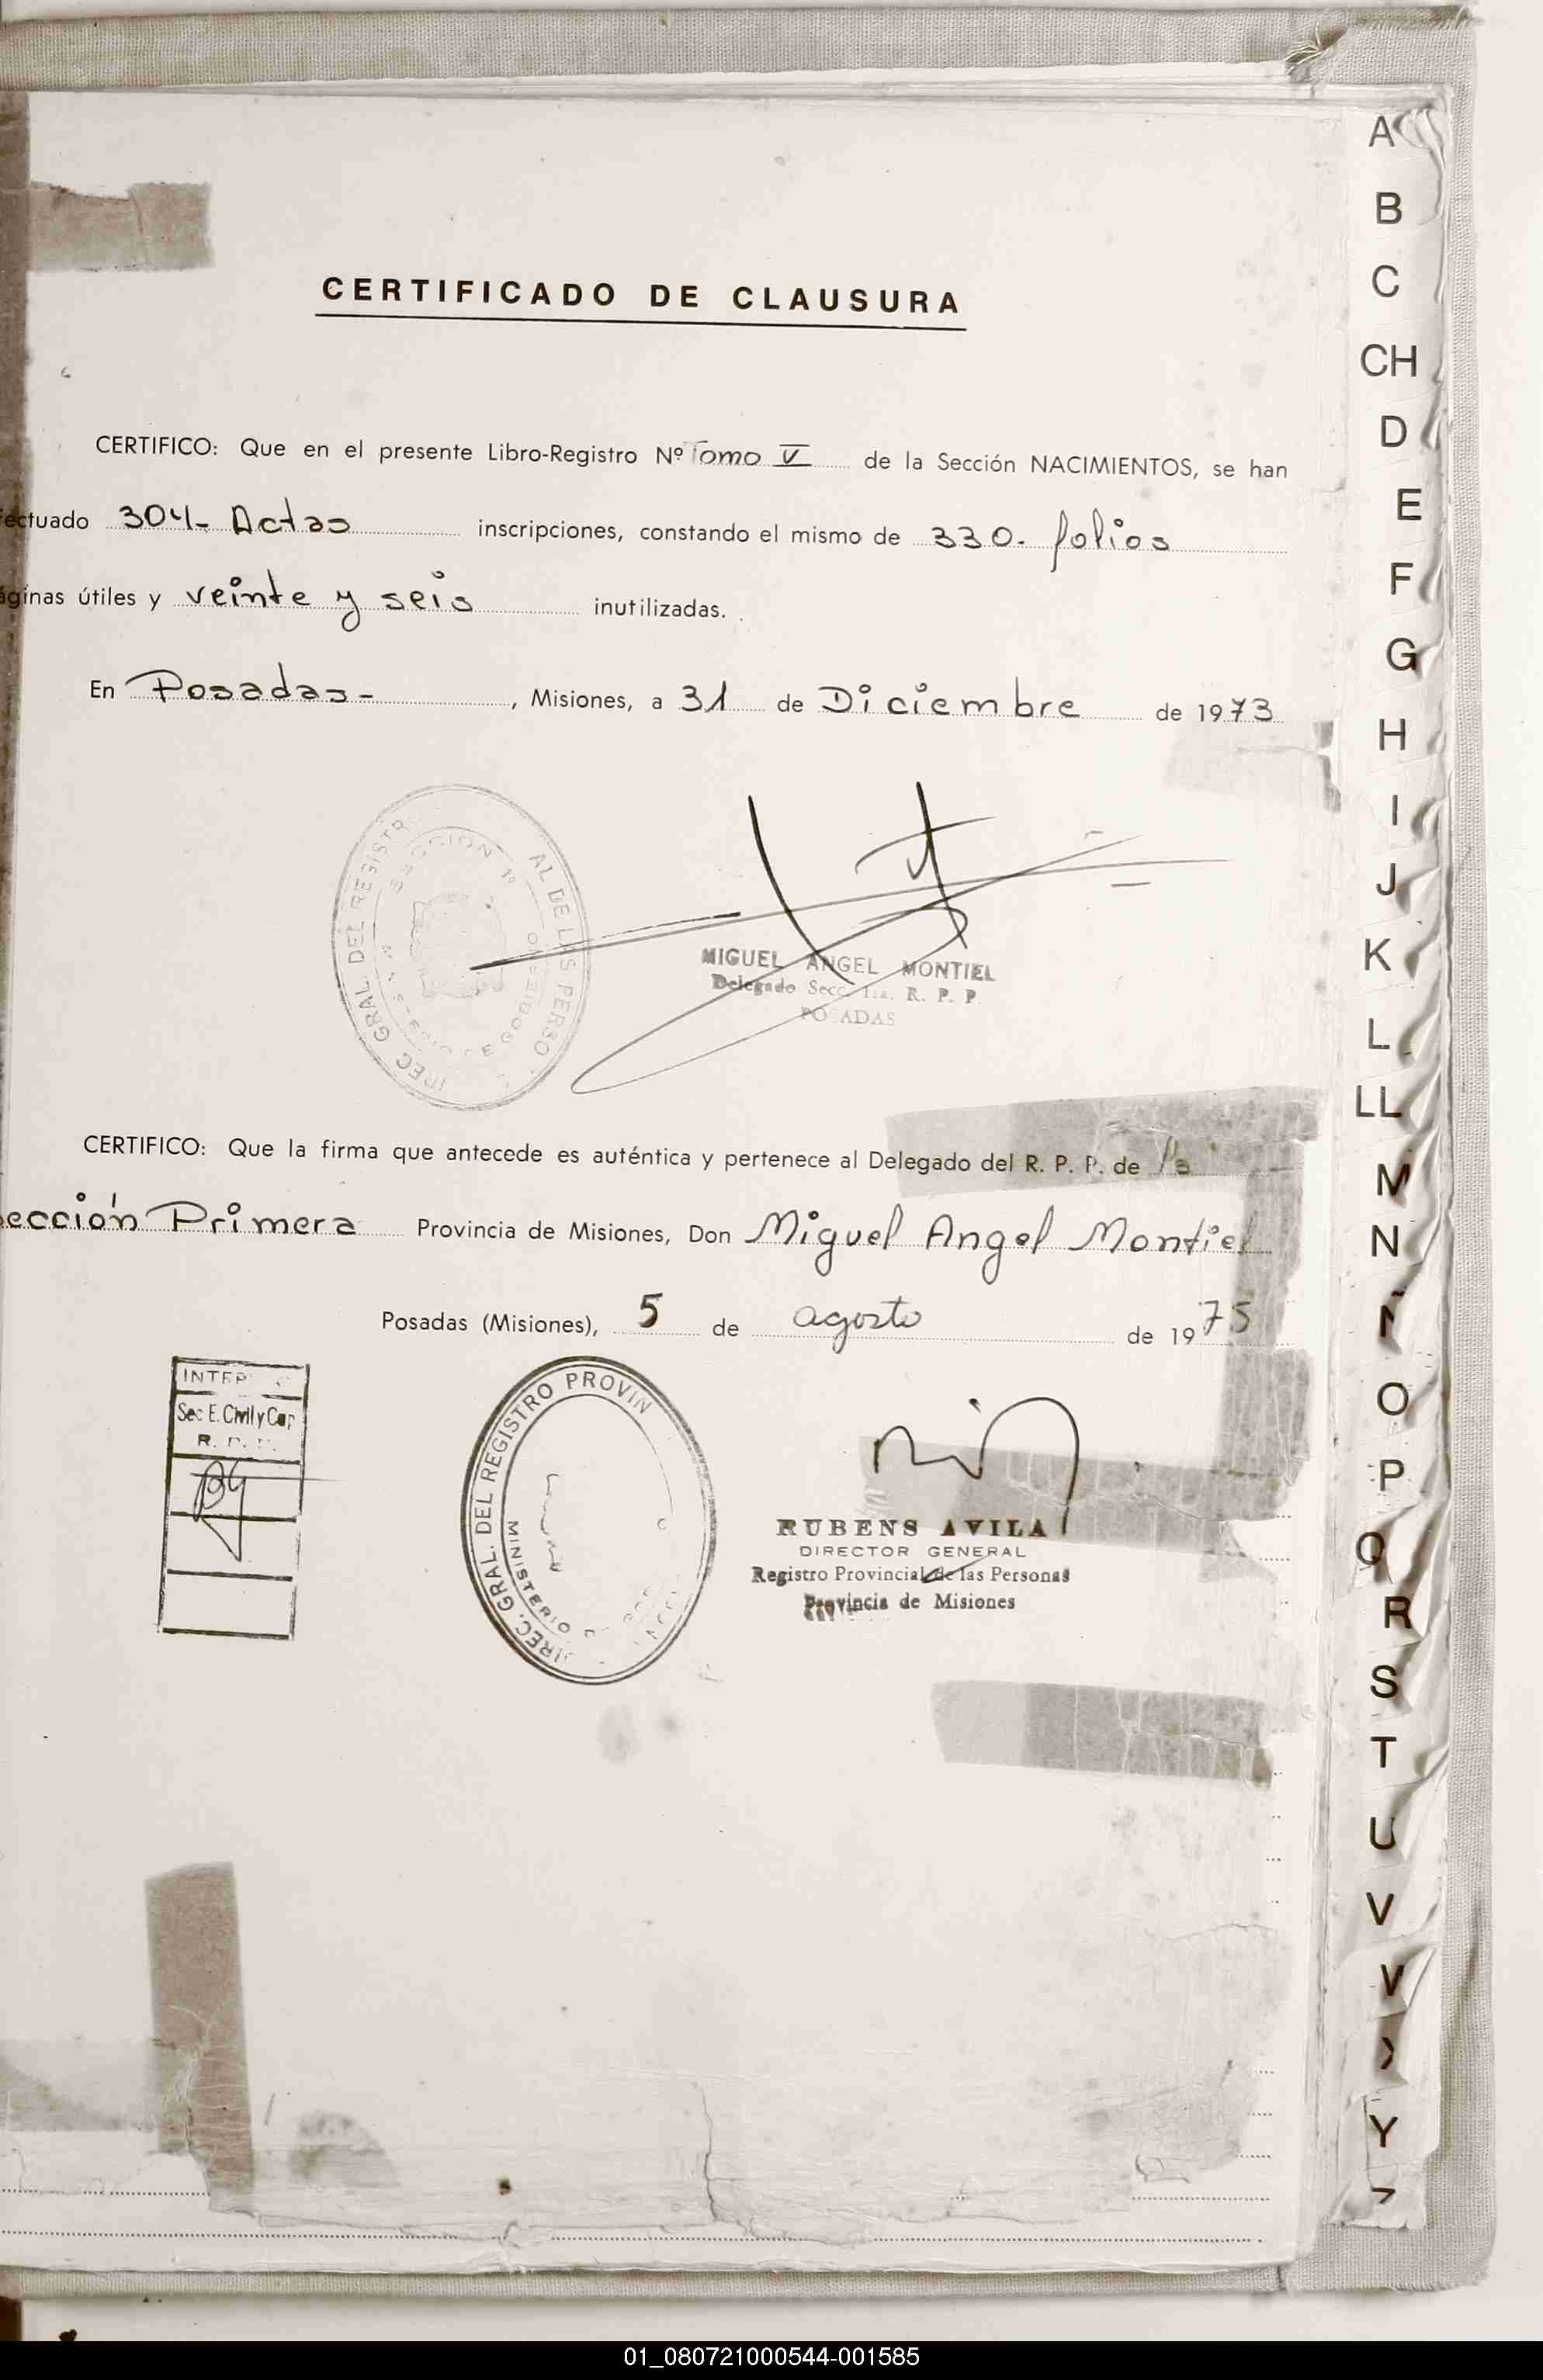 CERTIFICADO DE CLAUSURA
CERTIFICO: Que en el presente Libro-Registro Nº Tomo V de la Sección NACIMIENTOS, se han
ectuado 304- Actas inscripciones, constando el mismo de 330. folios
áginas útiles y veinte y seis inutilizadas.
En Posadas- , Misiones, a 31 de Diciembre de 1973
MIGUEL ANGEL MONTIEL
Delegado Secc. 1ra. R. P. P.
POSADAS
CERTIFICO: Que la firma que antecede es auténtica y pertenece al Delegado del R. P. P. de la
ección Primera Provincia de Misiones, Don Miguel Angel Montiel
Posadas (Misiones), 5 de agosto de 1975
Sec E. Civil y Cap
RUBENS AVILA
DIRECTOR GENERAL
Registro Provincial de las Personas
Provincia de Misiones
DIREC. GRAL. DEL REGISTRO PROVIN
MINISTERIO
A
B
C
CH
D
E
F
G
H
I
J
K
L
LL
M
N
O
P
Q
R
S
T
U
V
Y
01_080721000544-001585